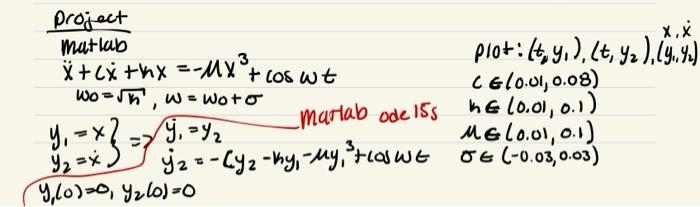 project
matlab
ẍ + cẋ + kx = -Mx³ + cos wt
w₀ = √k, w = w₀ + σ
y₁ = x } => ẏ₁ = y₂
y₂ = ẋ } ẏ₂ = -Cy₂ - ky₁ - My₁³ + cos wt
y₁(0) = 0, y₂(0) = 0
matlab ode 15s
x, ẋ
plot: (t, y₁), (t, y₂), (y₁, y₂)
C ∈ (0.01, 0.08)
k ∈ (0.01, 0.1)
M ∈ (0.01, 0.1)
σ ∈ (-0.03, 0.03)